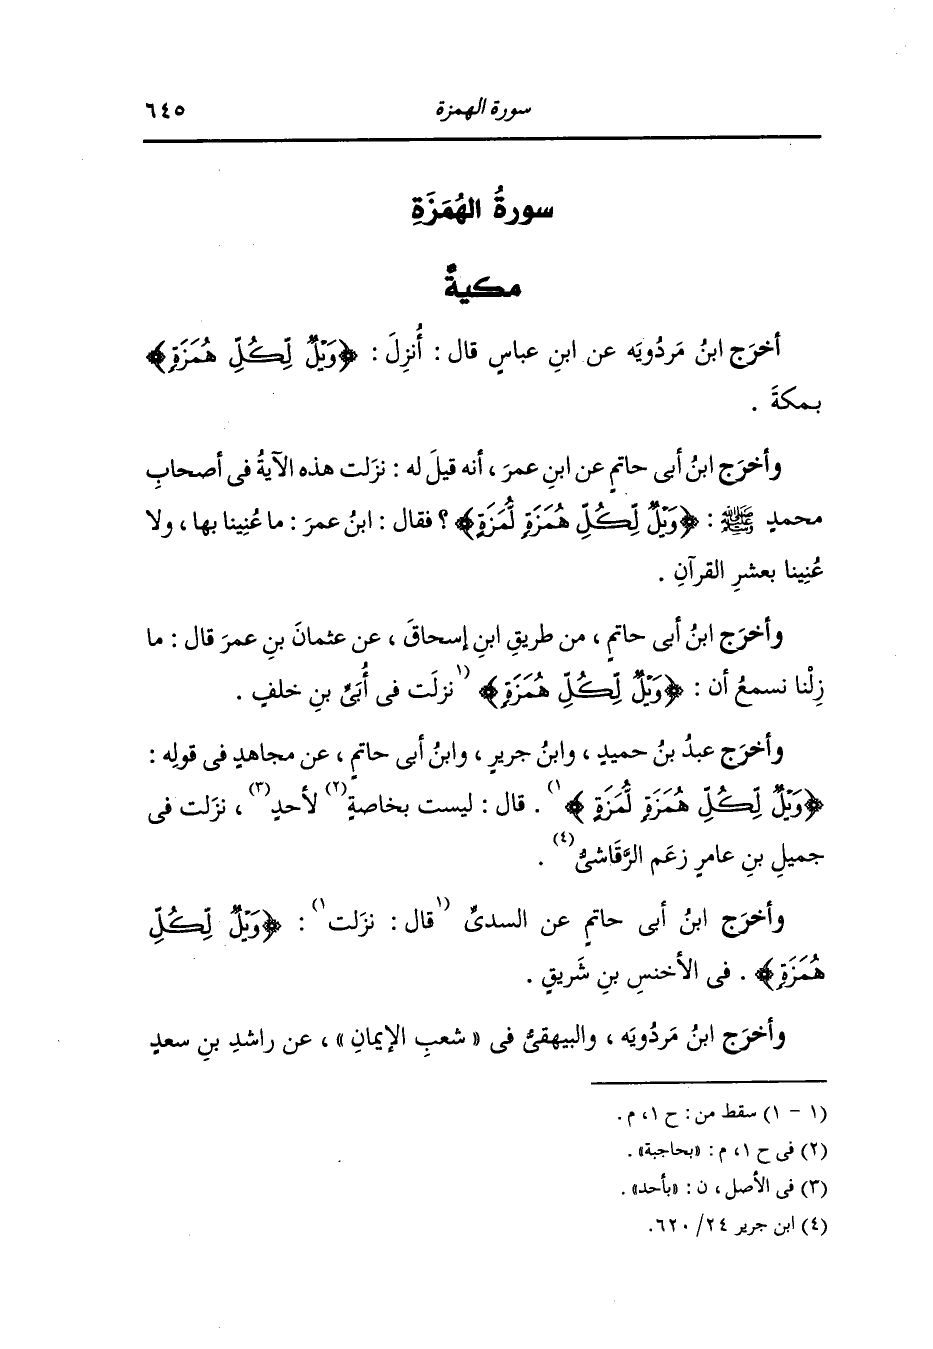 سورة الهمزة ٦٤٥
سورةُ الهُمَزَةِ
مكيةٌ
أخرَج ابنُ مَردُويَه عن ابنِ عباسٍ قال : أُنزِلَ : ﴿وَيْلٌ لِّكُلِّ هُمَزَةٍ﴾
بمكةَ .
وأخرَج ابنُ أبى حاتمٍ عن ابنِ عمرَ ، أنه قيلَ له : نزَلت هذه الآيةُ فى أصحابِ
محمدٍ ﷺ : ﴿وَيْلٌ لِّكُلِّ هُمَزَةٍ لُّمَزَةٍ﴾ ؟ فقال : ابنُ عمرَ : ما عُنِينا بها ، ولا
عُنِينا بعشرِ القرآنِ .
وأخرَج ابنُ أبى حاتمٍ ، من طريقِ ابنِ إسحاقَ ، عن عثمانَ بنِ عمرَ قال : ما
زِلْنا نسمعُ أن : ﴿وَيْلٌ لِّكُلِّ هُمَزَةٍ﴾ (١نزلَت فى أُبَىِّ بنِ خلفٍ .
وأخرَج عبدُ بنُ حميدٍ ، وابنُ جريرٍ ، وابنُ أبى حاتمٍ ، عن مجاهدٍ فى قولِه :
﴿وَيْلٌ لِّكُلِّ هُمَزَةٍ لُّمَزَةٍ﴾ ١) . قال : ليست بخاصةٍ (٢) لأحدٍ (٣) ، نزَلت فى
جميلِ بنِ عامرٍ زعَم الرَّقَاشىُّ (٤) .
وأخرَج ابنُ أبى حاتمٍ عن السدىِّ (١قال : نزَلت١) : ﴿وَيْلٌ لِّكُلِّ
هُمَزَةٍ﴾ . فى الأخنسِ بنِ شَريقٍ .
وأخرَج ابنُ مَردُويَه ، والبيهقىُّ فى « شعبِ الإيمانِ » ، عن راشدِ بنِ سعدٍ
(١ - ١) سقط من : ح ١ ، م .
(٢) فى ح ١ ، م : «بحاجبة» .
(٣) فى الأصل ، ن : «بأحد» .
(٤) ابن جرير ٢٤/ ٦٢٠.